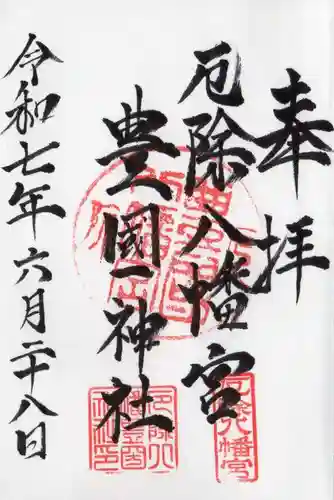 奉拝
厄除八幡宮
豊國神社
令和七年六月二十八日
厄除八幡宮